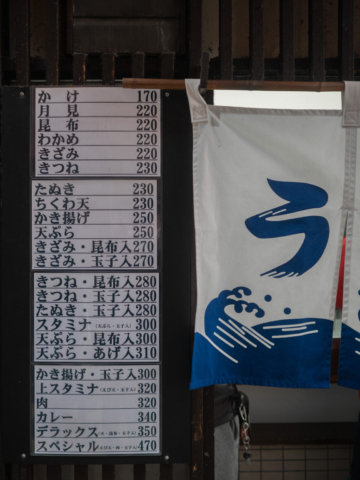 かけ 170
月見 220
昆布 220
わかめ 220
きざみ 220
きつね 230
たぬき 230
ちくわ天 230
かき揚げ 250
天ぷら 250
きざみ・昆布入 270
きざみ・玉子入 270
きつね・昆布入 280
きつね・玉子入 280
たぬき・玉子入 280
スタミナ(天ぷら・玉子入) 300
天ぷら・昆布入 300
天ぷら・あげ入 310
かき揚げ・玉子入 300
上スタミナ 320
肉 320
カレー 340
デラックス 350
スペシャル 470
う